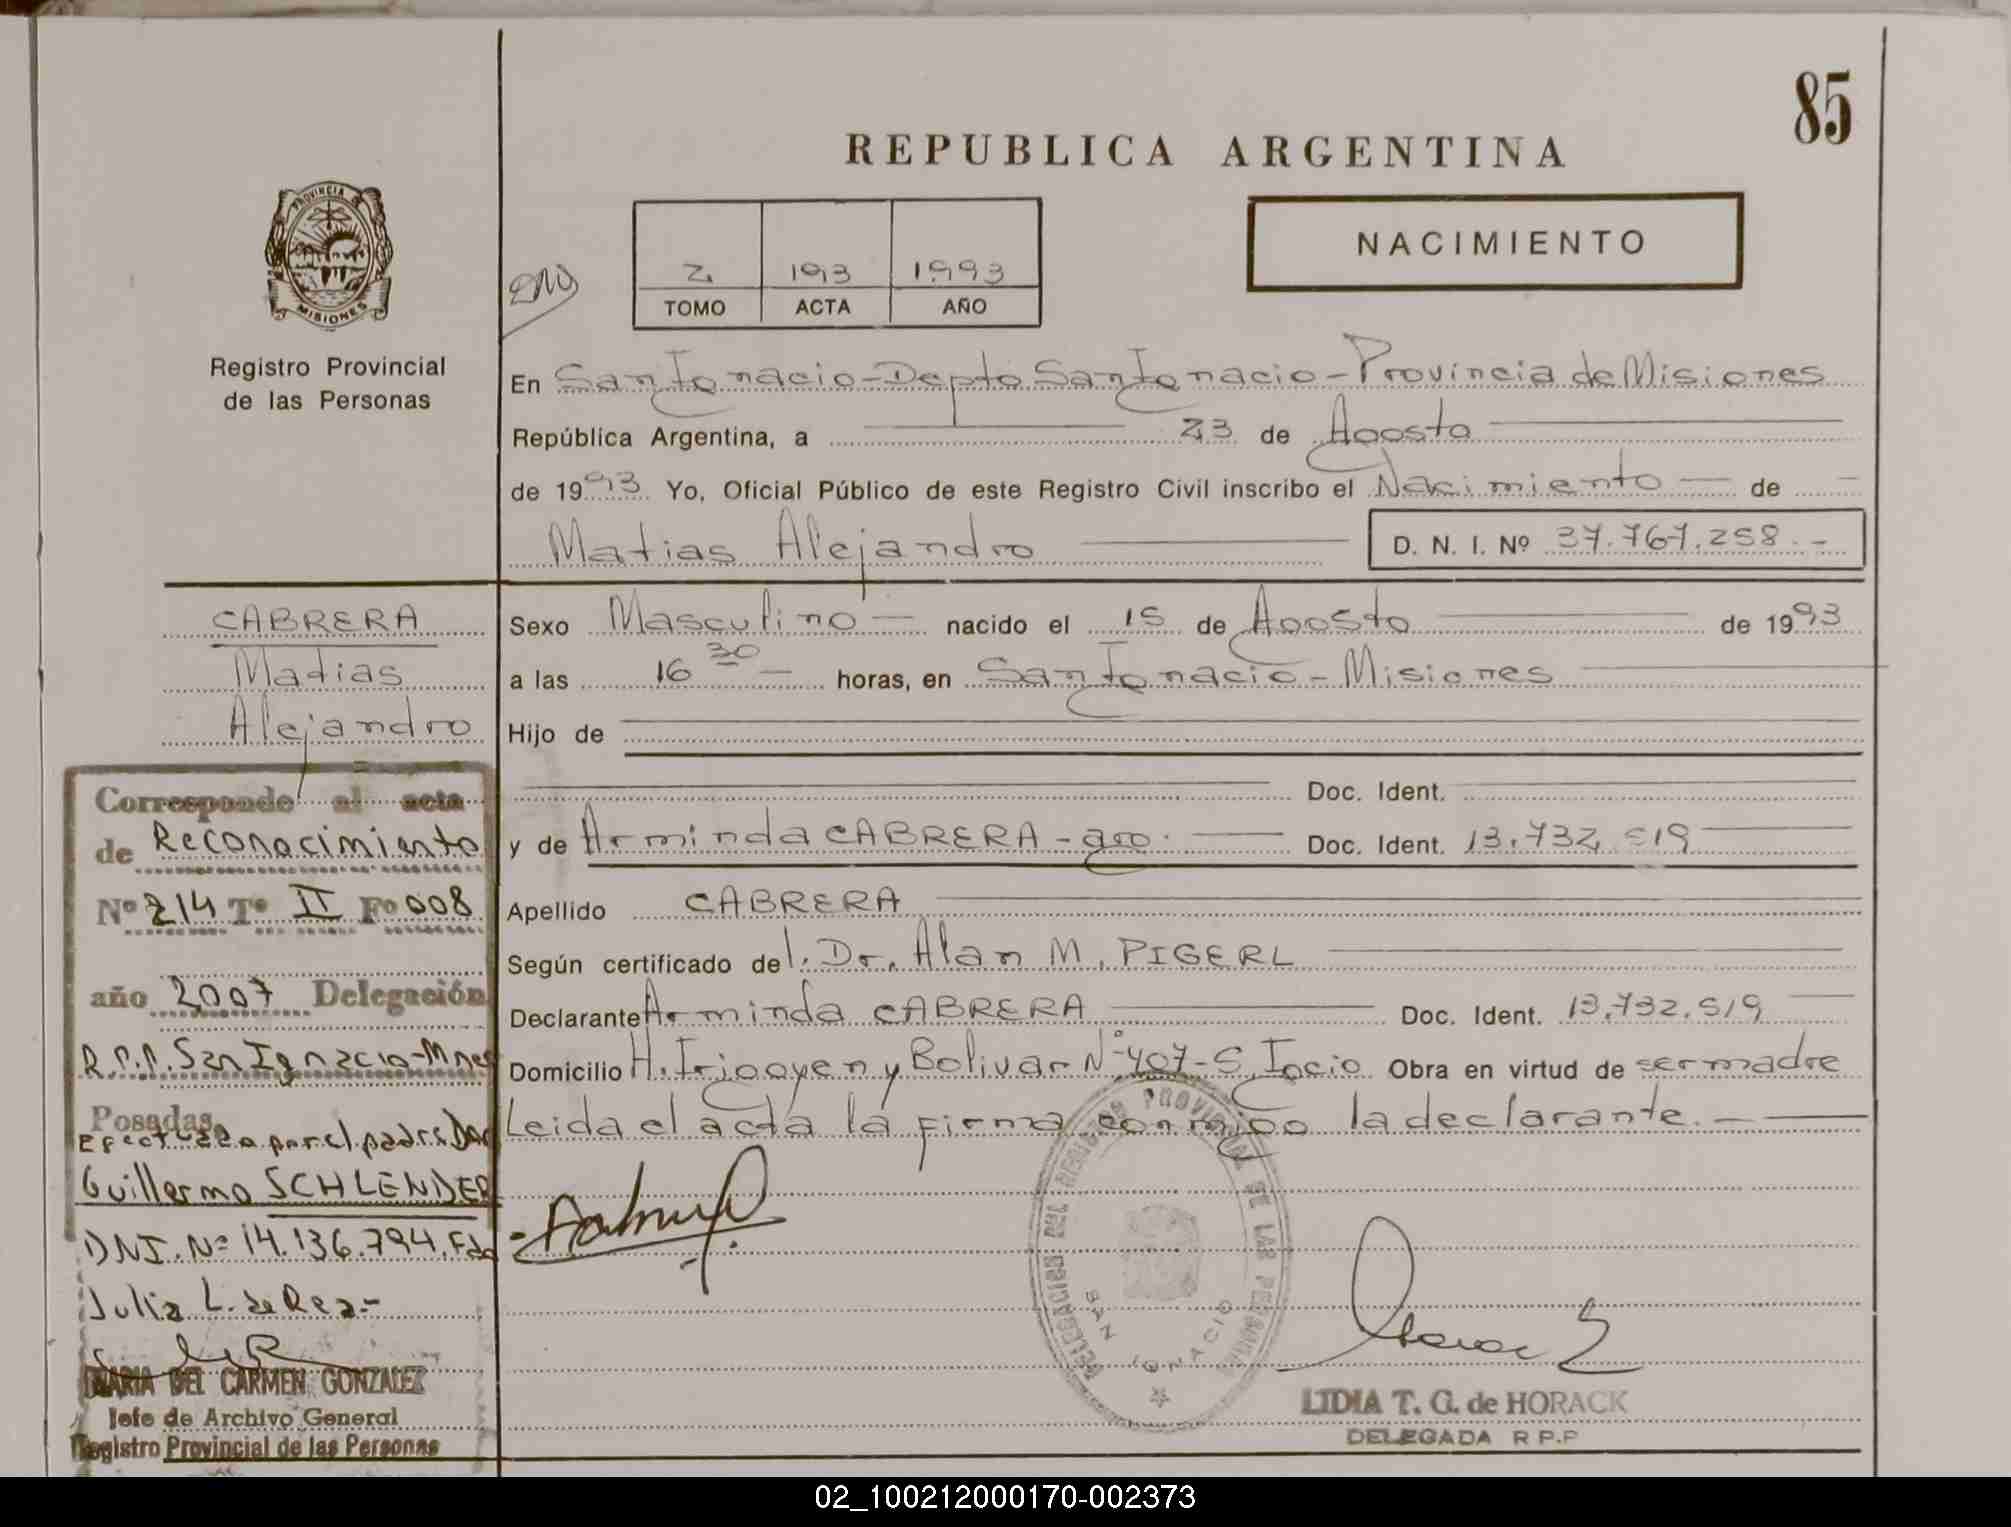 85
REPUBLICA ARGENTINA
PROVINCIA DE
MISIONES
Registro Provincial
de las Personas
2 193 1993
TOMO ACTA AÑO
NACIMIENTO
En San Ignacio - Depto San Ignacio - Provincia de Misiones
República Argentina, a 23 de Agosto
de 1993 Yo, Oficial Público de este Registro Civil inscribo el Nacimiento — de —
Matias Alejandro
D. N. I. Nº 37.767.258.-
CABRERA
Matias
Alejandro
Sexo Masculino — nacido el 15 de Agosto de 1993
a las 16 30 — horas, en San Ignacio - Misiones
Hijo de
Doc. Ident.
y de Arminda CABRERA - Doc. Ident. 13.732.519
Apellido CABRERA
Según certificado del. Dr. Alan M. PIGERL
Declarante Arminda CABRERA Doc. Ident. 13.732.519
Domicilio H. Irigoyen y Bolivar Nº 407 - S. Igcio Obra en virtud de ser madre
Leida el acta la firma conmigo la declarante. —
Corresponde al acta
de Reconocimiento
Nº 214 Tº II Fº 008
año 2007 Delegación
R.P.P. San Ignacio - Mnes
Posadas,
Efectuado por el padre Don
Guillermo SCHLENDER
DNI. Nº 14.136.794. Fdo
Julia L. de Rea.-
MARIA DEL CARMEN GONZALEZ
Jefe de Archivo General
Registro Provincial de las Personas
DELEGACION DEL REGISTRO PROVINCIAL DE LAS PERSONAS
SAN IGNACIO
LIDIA T. G. de HORACK
DELEGADA R P.P
02_100212000170-002373